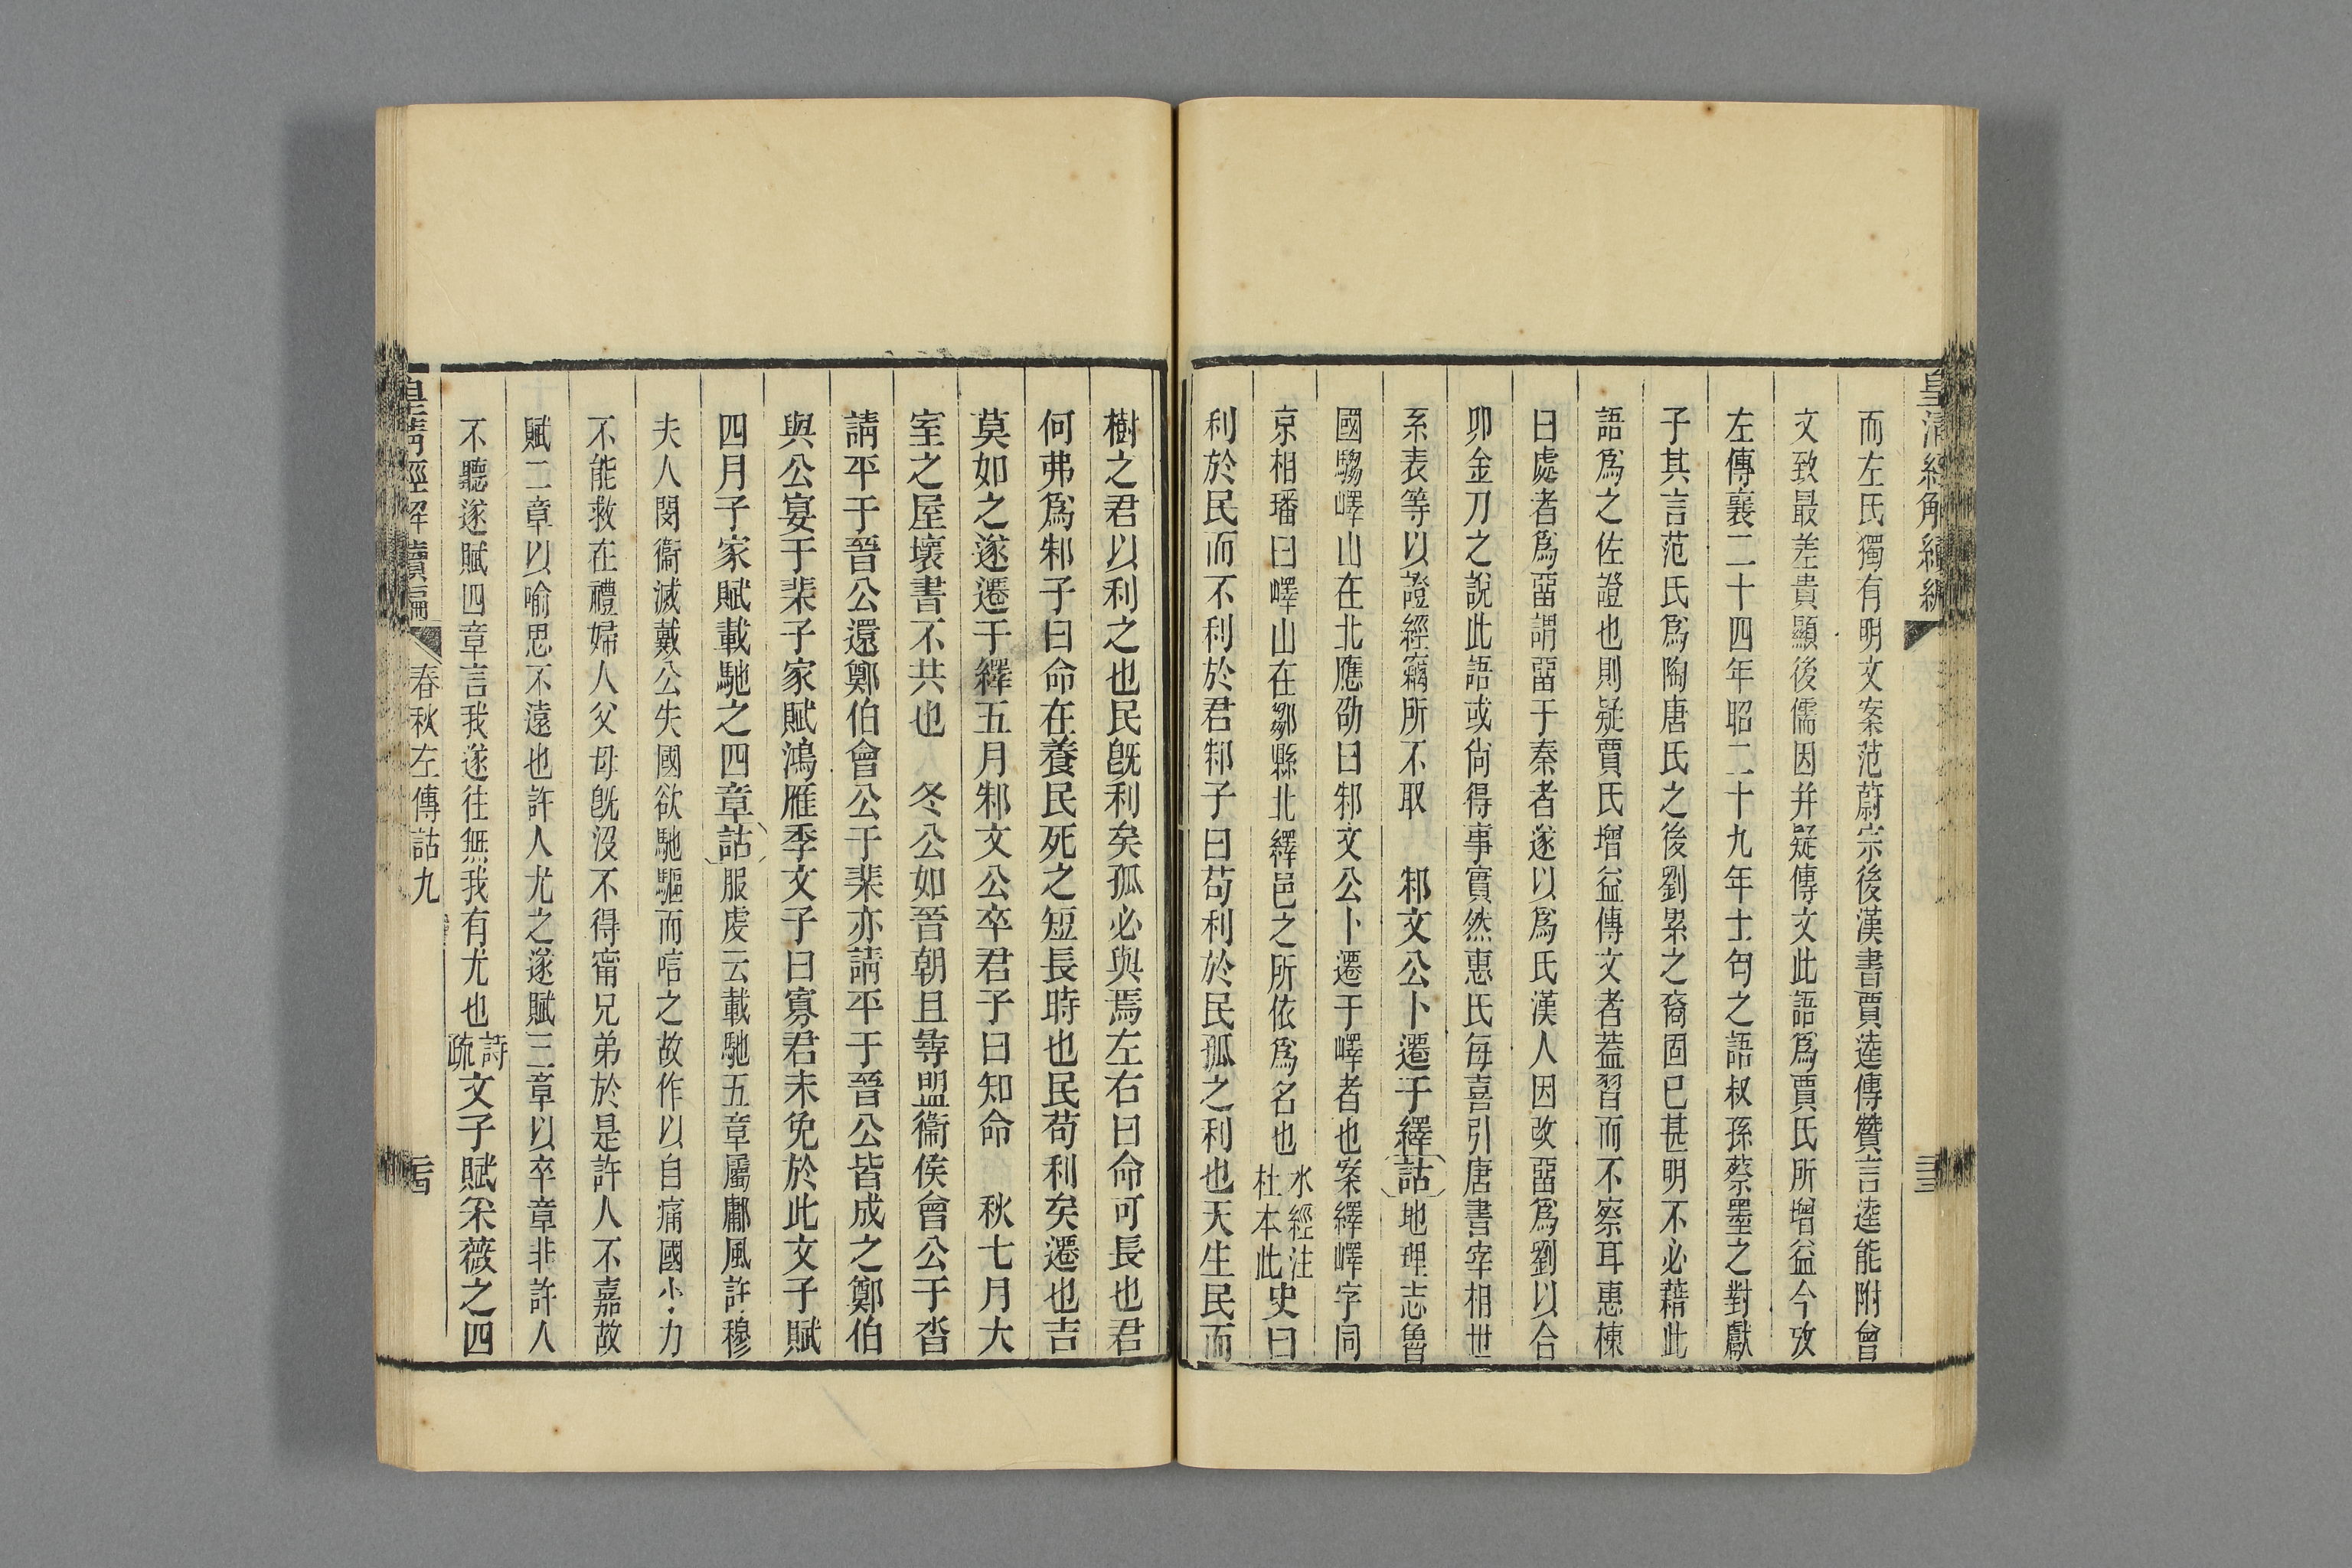 皇清經解續編
而左氏獨有明文案范蔚宗後漢書賈逵傳贊言逵能附會
文致最差貴顯後儒因并疑傳文此語爲賈氏所增益今攷
左傳襄二十四年昭二十九年士匄之語叔孫蔡墨之對獻
子其言范氏爲陶唐氏之後劉累之裔固已甚明不必藉此
語爲之佐證也則疑賈氏增益傳文者葢習而不察耳惠棟
曰處者爲畱謂畱于秦者遂以爲氏漢人因改畱爲劉以合
卯金刀之說此語或尙得事實然惠氏每喜引唐書宰相世
系表等以證經竊所不取　邾文公卜遷于繹詁地理志魯
國騶嶧山在北應劭曰邾文公卜遷于嶧者也案繹嶧字同
京相璠曰嶧山在鄒縣北繹邑之所依爲名也水經注杜本此史曰
利於民而不利於君邾子曰苟利於民孤之利也天生民而
三三
樹之君以利之也民旣利矣孤必與焉左右曰命可長也君
何弗爲邾子曰命在養民死之短長時也民苟利矣遷也吉
莫如之遂遷于繹五月邾文公卒君子曰知命　秋七月大
室之屋壞書不共也　冬公如晉朝且尋盟衞侯會公于沓
請平于晉公還鄭伯會公于棐亦請平于晉公皆成之鄭伯
與公宴于棐子家賦鴻雁季文子曰寡君未免於此文子賦
四月子家賦載馳之四章詁服虔云載馳五章屬鄘風許穆
夫人閔衞滅戴公失國欲馳驅而唁之故作以自痛國小力
不能救在禮婦人父母旣沒不得甯兄弟於是許人不嘉故
賦二章以喻思不遠也許人尤之遂賦三章以卒章非許人
不聽遂賦四章言我遂往無我有尤也詩疏文子賦采薇之四
皇淸經解續編　春秋左傳詁九　三四